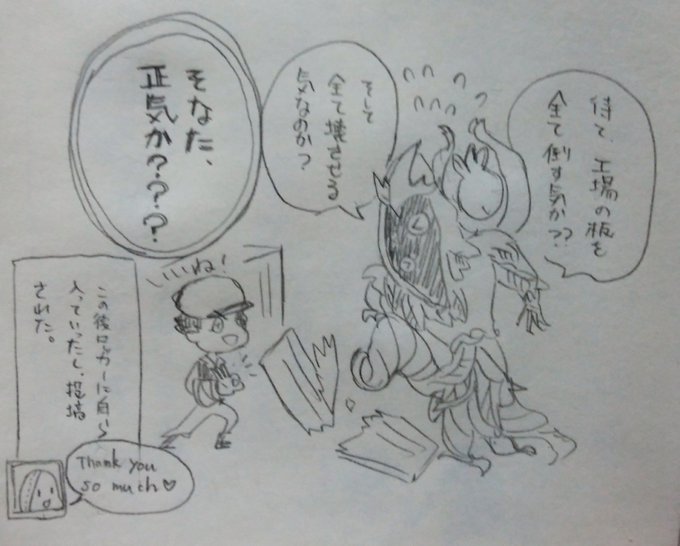 待て、工場の板を
全て倒す気か??
そして
全て壊させる
気なのか?
そなた、
正気か???
いいね!
この後ロッカーに自ら
入っていったし、投稿
された。
Thank you
so much♡